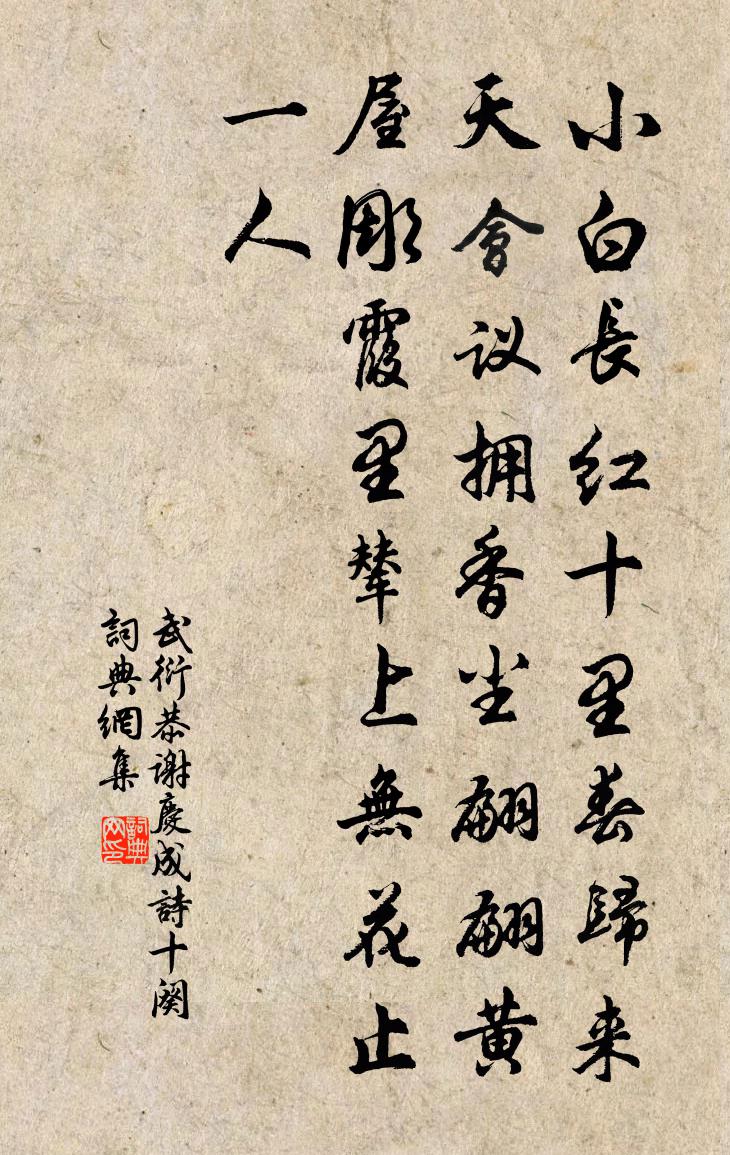 小白長红十里春歸来
天會议拥香尘翩翩黄
屋彫霞里辇上無花止
一人
武衍恭谢慶成詩十阕
詞典網集
詞典网印